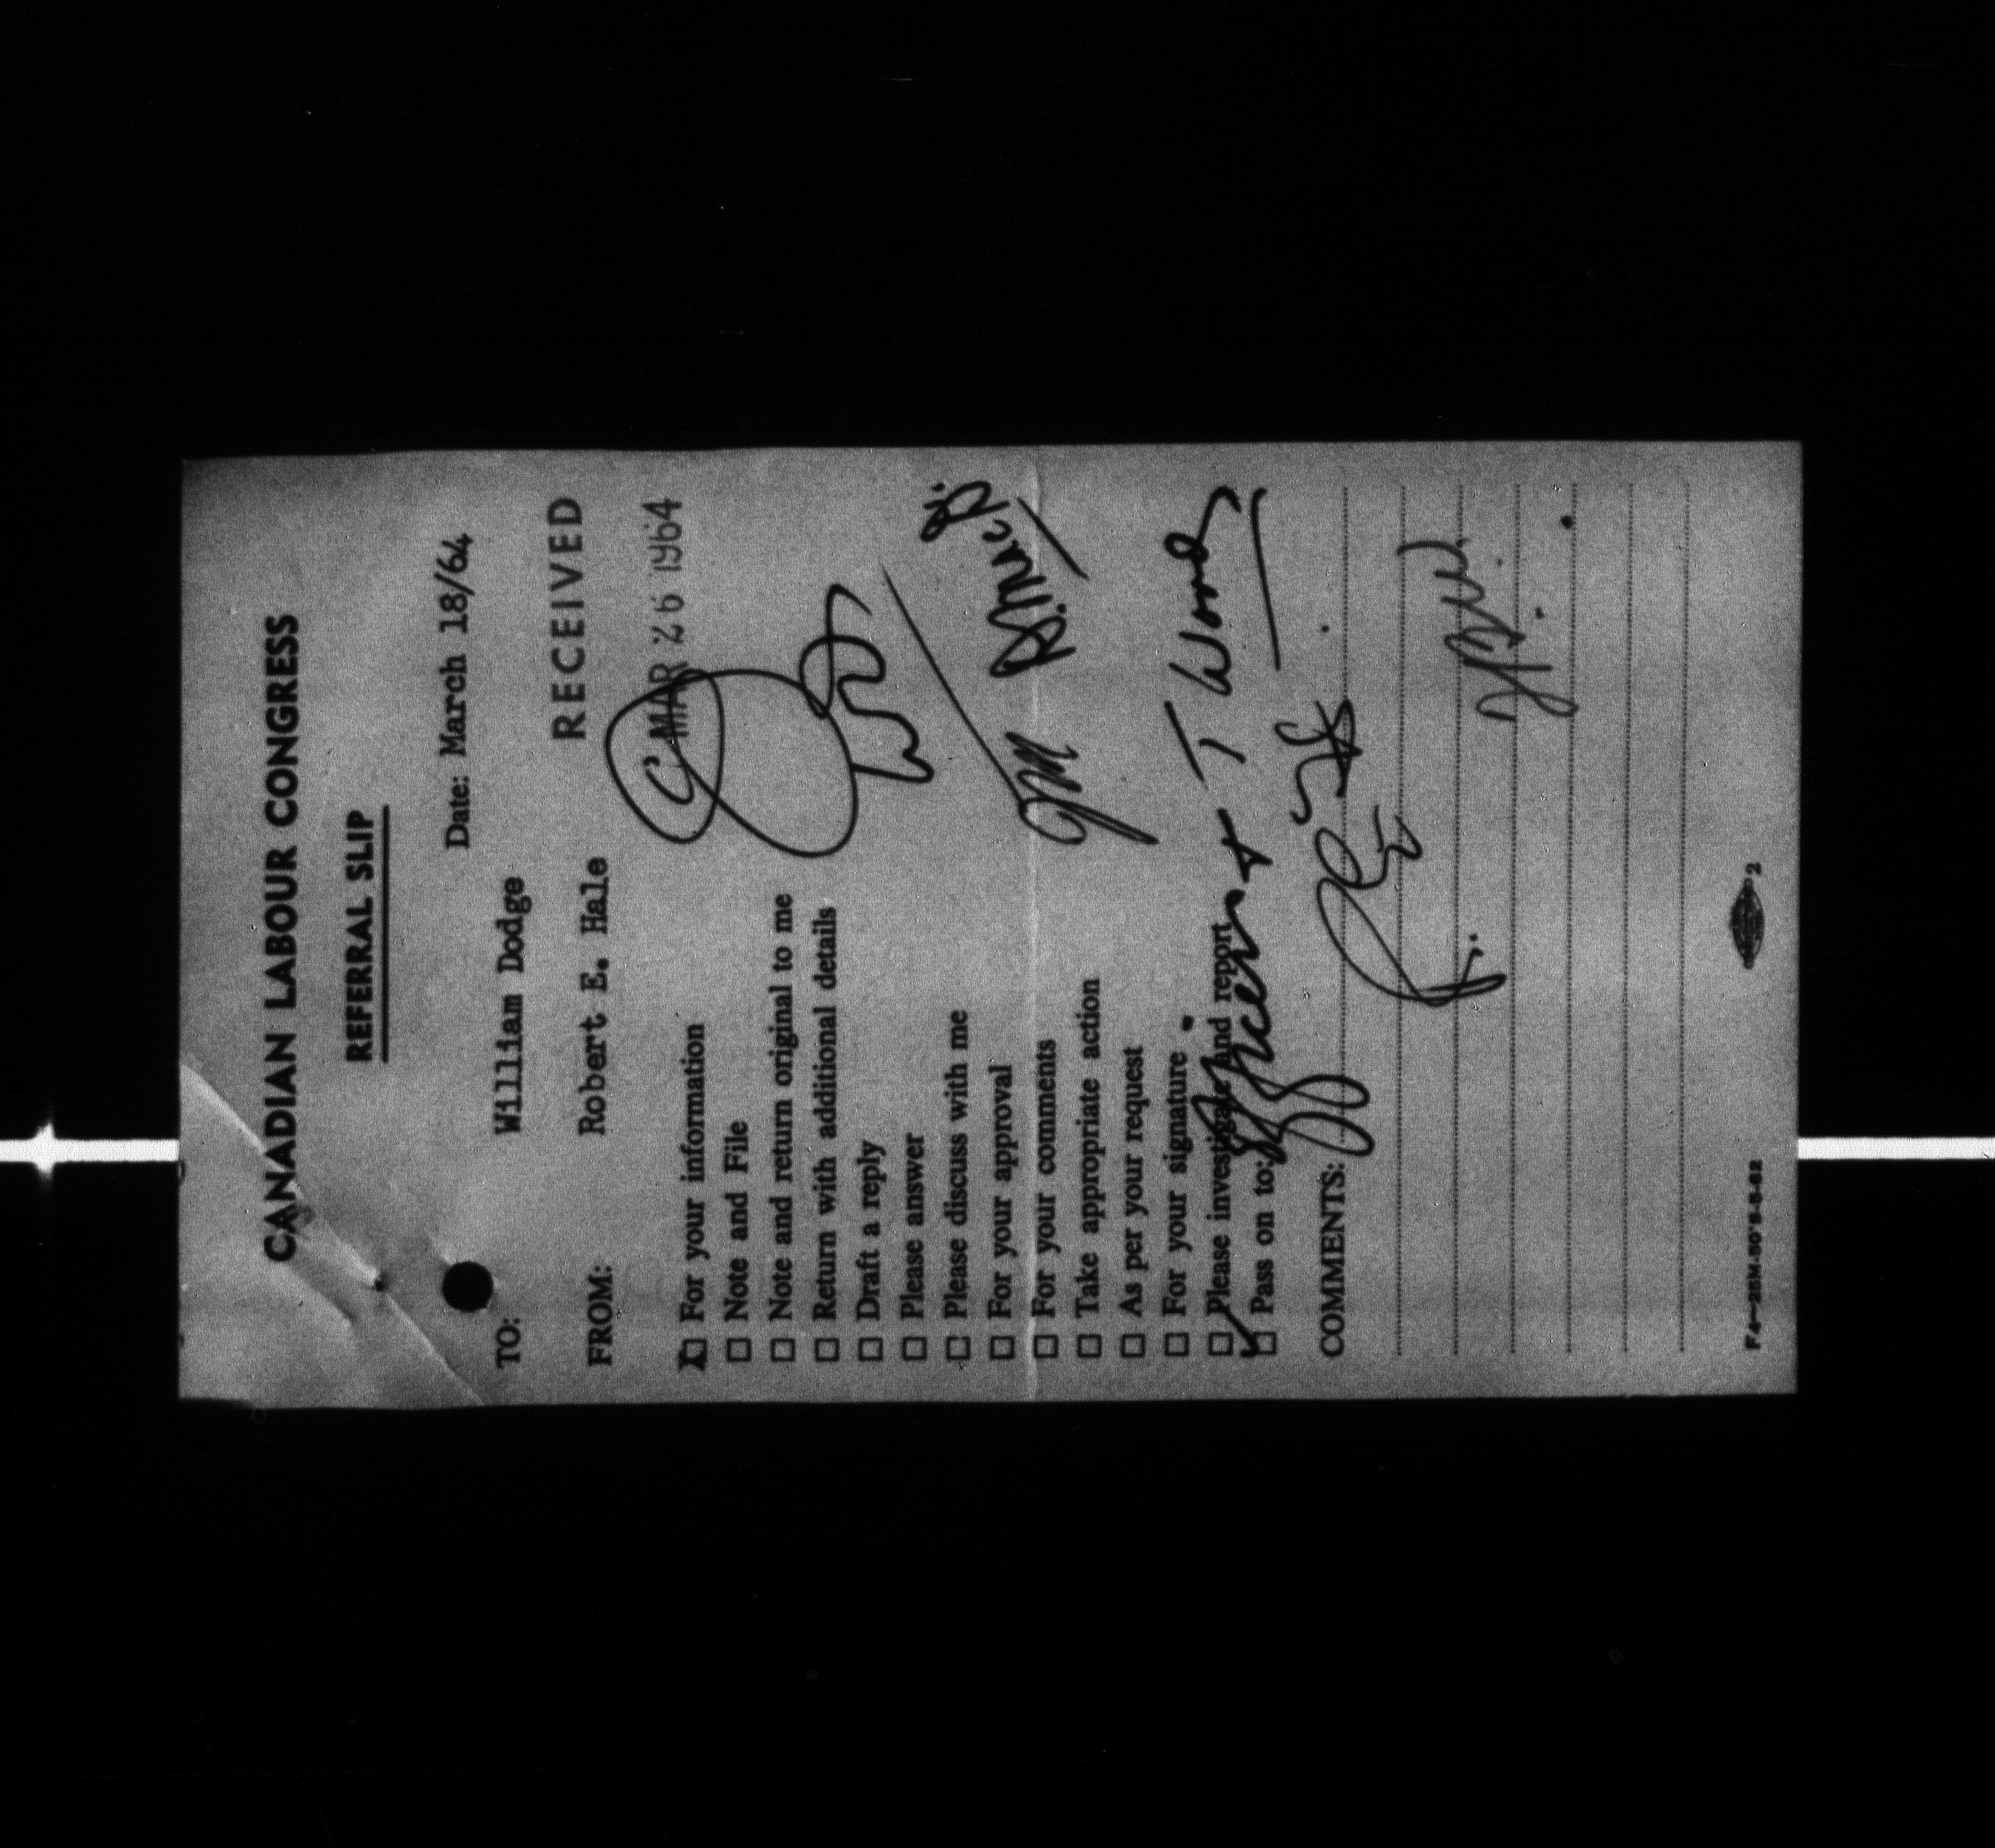 CANADIAN LABOUR CONGRESS
REFERRAL SLIP
Date: March 18/64
TO: William Dodge
RECEIVED
FROM: Robert E. Hale
MAR 26 1964
X For your information
Note and File
Note and return original to me
Return with additional details
Draft a reply
Please answer
Please discuss with me
For your approval
For your comments
Take appropriate action
As per your request
For your signature
Please investigate and report
Pass on to: Officers +
COMMENTS:
2
F4—25M-50'S-5-62